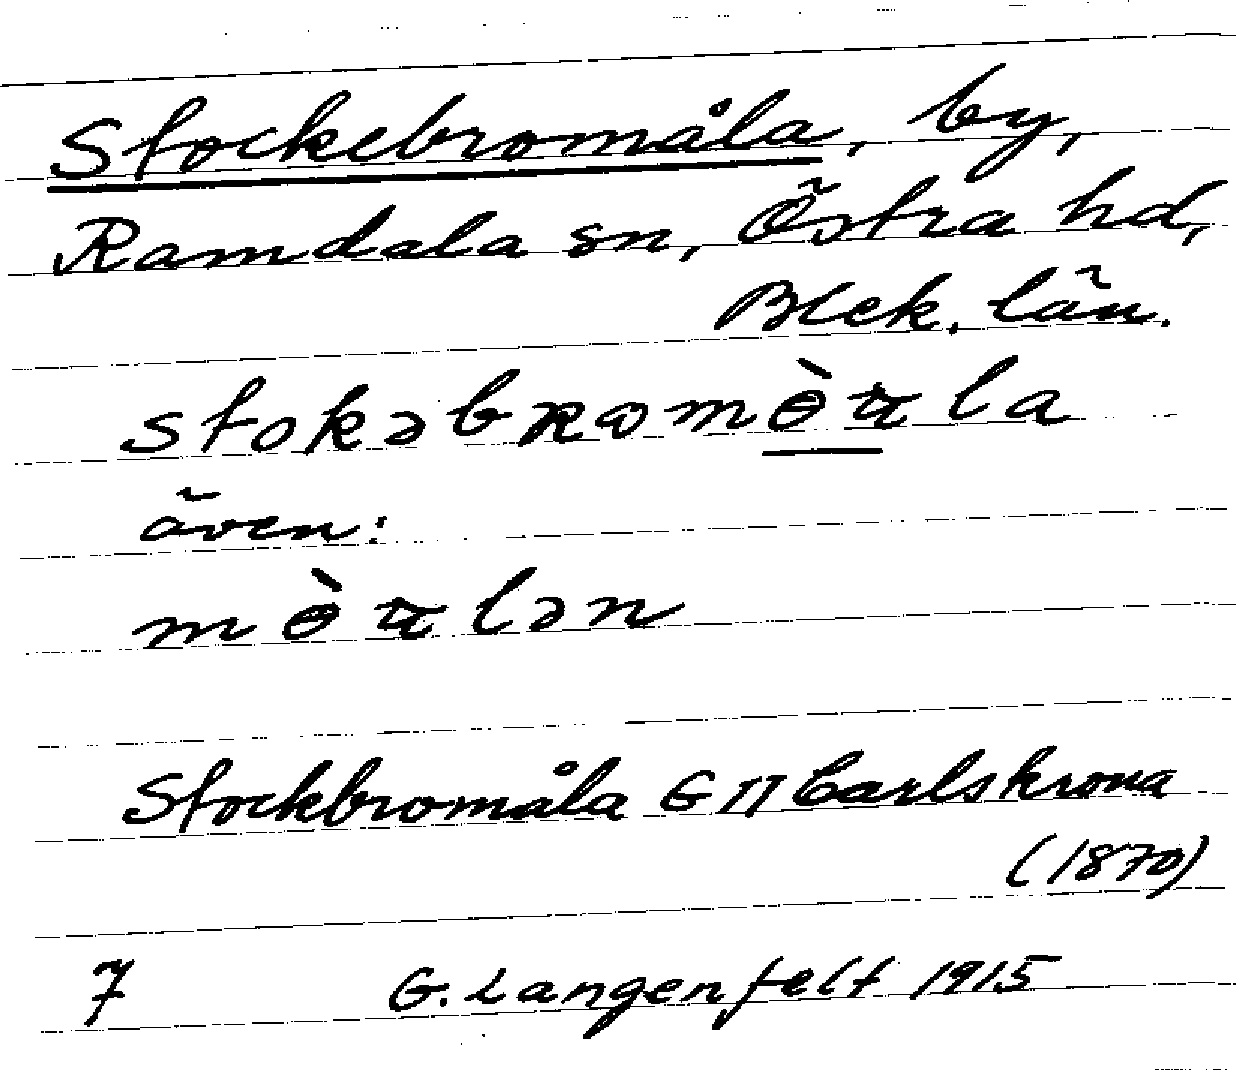 Stockebromåla, by,
Ramdala sn, Östra hd,
Blek. län.
även:
Stockbromåla G II Carlskrona
(1870)
7 G. Langenfelt 1915